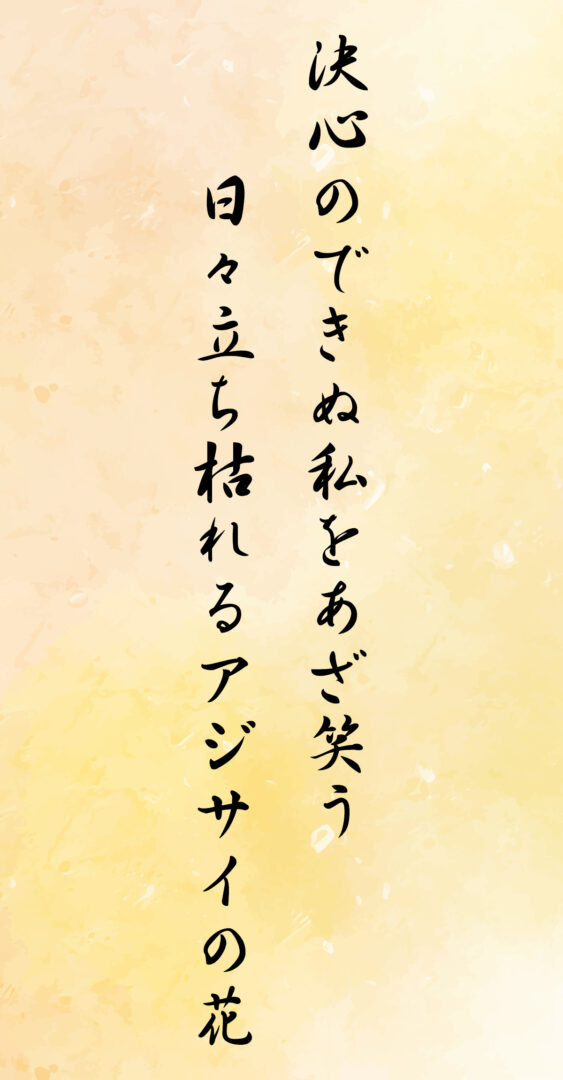 決心のできぬ私をあざ笑う
日々立ち枯れるアジサイの花